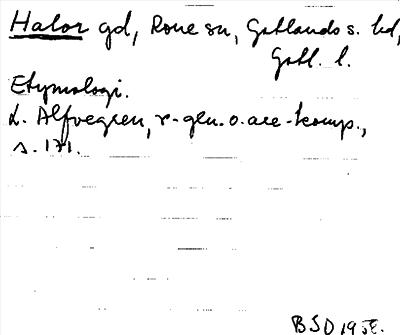 Halor gd, Rone sn, Gotlands s. hd,
Gotl. l.
Etymologi.
L. Alfvegren, r-gen. o. ace-komp.,
s. 171.
BSD 1958.